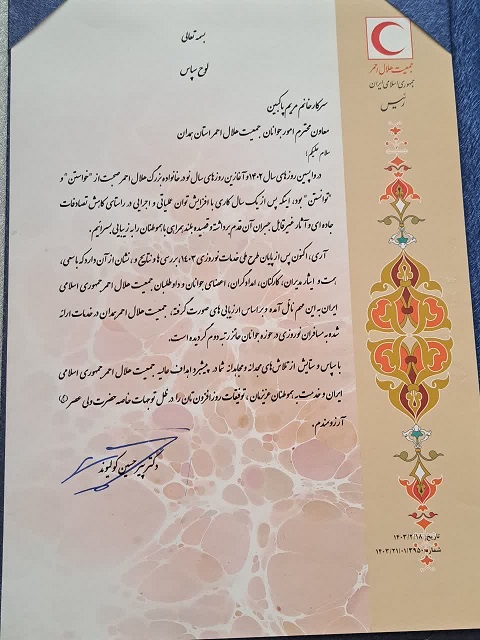 جمعیت هلال احمر
جمهوری اسلامی ایران
رئیس
بسمه تعالی
لوح سپاس
سرکار خانم مریم پاکبین
معاون محترم امور جوانان جمعیت هلال احمر استان همدان
سلام علیکم؛
در واپسین روزهای سال ۱۴۰۲ و آغازین روزهای سال نو در خانواده بزرگ هلال احمر صحبت از "خواستن" و
"توانستن" بود، اینکه پس از یک سال کاری با افزایش توان عملیاتی و اجرایی در راستای کاهش تصادفات
جاده ای و آثار غیر قابل جبران آن قدم برداشته و قصیده بلند همراهی با هموطنان را به زیبایی بسرائیم.
آری، اکنون پس از پایان طرح ملی خدمات نوروزی ۱۴۰۳، بررسی ها و نتایج و، نشان از آن دارد که با سعی،
همت و ایثار مدیران، کارکنان، امدادگران، اعضای جوانان و داوطلبان جمعیت هلال احمر جمهوری اسلامی
ایران به این مهم نائل آمده و بر اساس ارزیابی های صورت گرفته، جمعیت هلال احمر همدان در خدمات ارائه
شده به مسافران نوروزی در حوزه جوانان حائز رتبه دوم گردیده است.
با سپاس و ستایش از تلاش های مجدانه و مجاهدانه شما در پیشبرد اهداف عالیه جمعیت هلال احمر جمهوری اسلامی
ایران و خدمت به هموطنان عزیزمان، توفیقات روز افزون تان را در ظل توجهات خاصه حضرت ولی عصر (عج)
آرزومندم.
دکتر پیرحسین کولیوند
تاریخ: ۱۴۰۳/۲/۱۸
شماره: ۱۴۰۳/۲۱/۰۱/۳۹۵۰